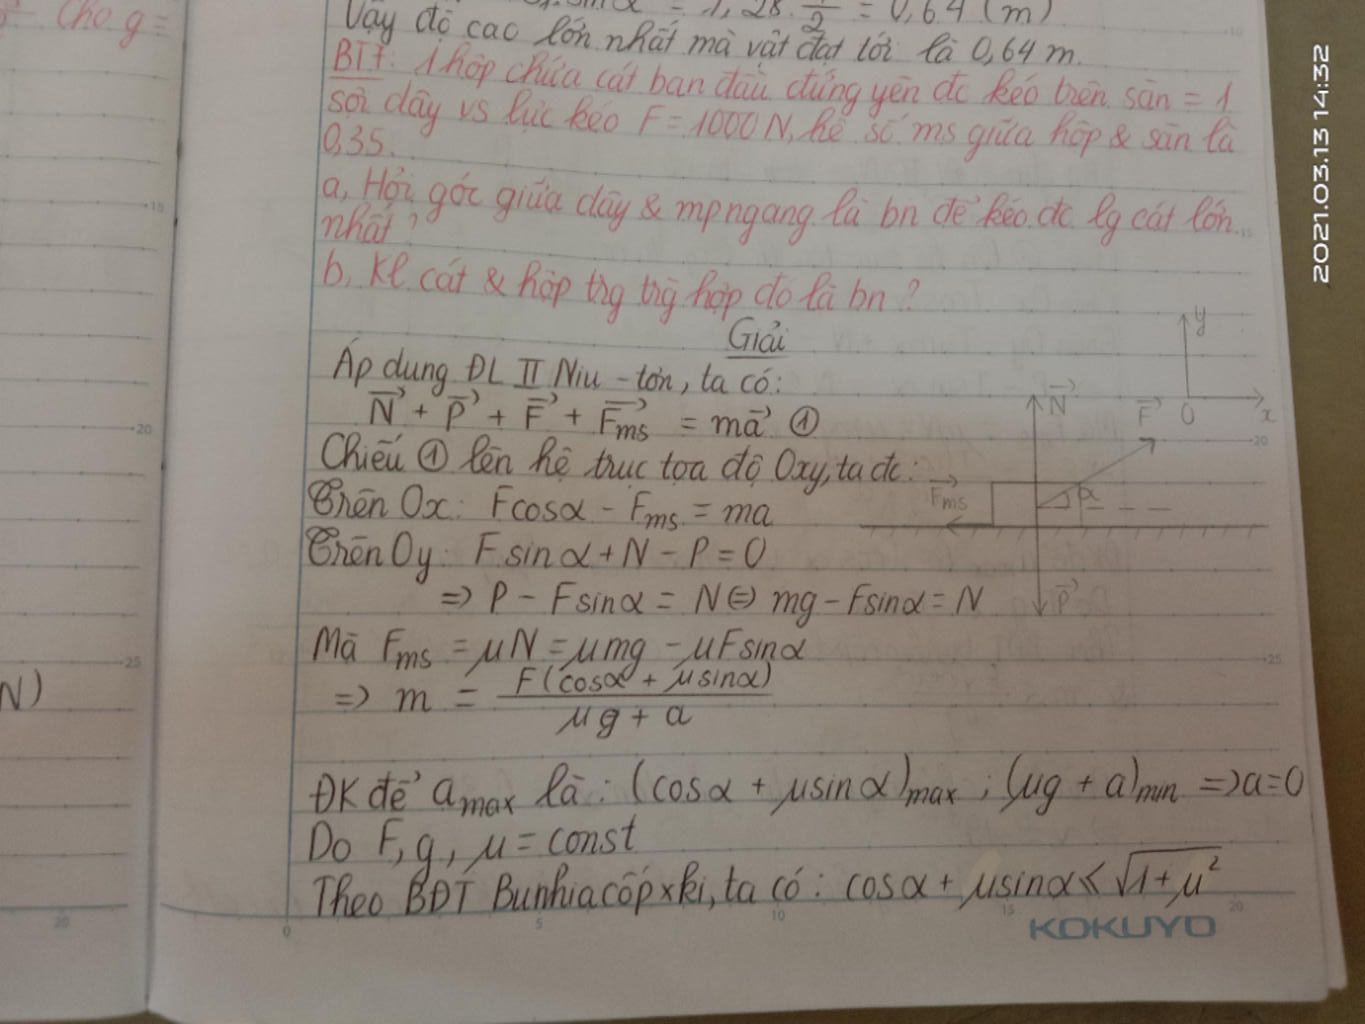 Cho g =
= 1,28. 1/2 = 0,64 (m)
Vậy độ cao lớn nhất mà vật đạt tới là 0,64 m.
BT7: 1 hộp chứa cát ban đầu đứng yên đc kéo trên sàn = 1
sợi dây vs lực kéo F = 1000N, hệ số ms giữa hộp & sàn là
0,35.
a, Hỏi góc giữa dây & mp ngang là bn để kéo đc lg cát lớn
nhất?
b, KL cát & hộp trg trg hợp đó là bn?
Giải
Áp dụng ĐL II Niu - tơn, ta có:
N⃗ + P⃗ + F⃗ + F⃗ms = ma⃗ ①
Chiếu ① lên hệ trục tọa độ Oxy, ta đc:
Trên Ox: Fcosα - Fms = ma
Trên Oy: F sinα + N - P = 0
=> P - Fsinα = N <=> mg - Fsinα = N
Mà Fms = μN = μmg - μFsinα
=> m = F(cosα + μsinα) / μg + a
ĐK để amax là: (cosα + μsinα)max ; (μg + a)min => a = 0
Do F, g, μ = const
Theo BĐT Bunhiacốpxki, ta có: cosα + μsinα ≤ √1 + μ²
y
x
O
N⃗
F⃗
F⃗ms
α
P⃗
N)
15
20
25
20
20
25
0
5
10
15
20
KOKUYO
2021.03.13 14:32